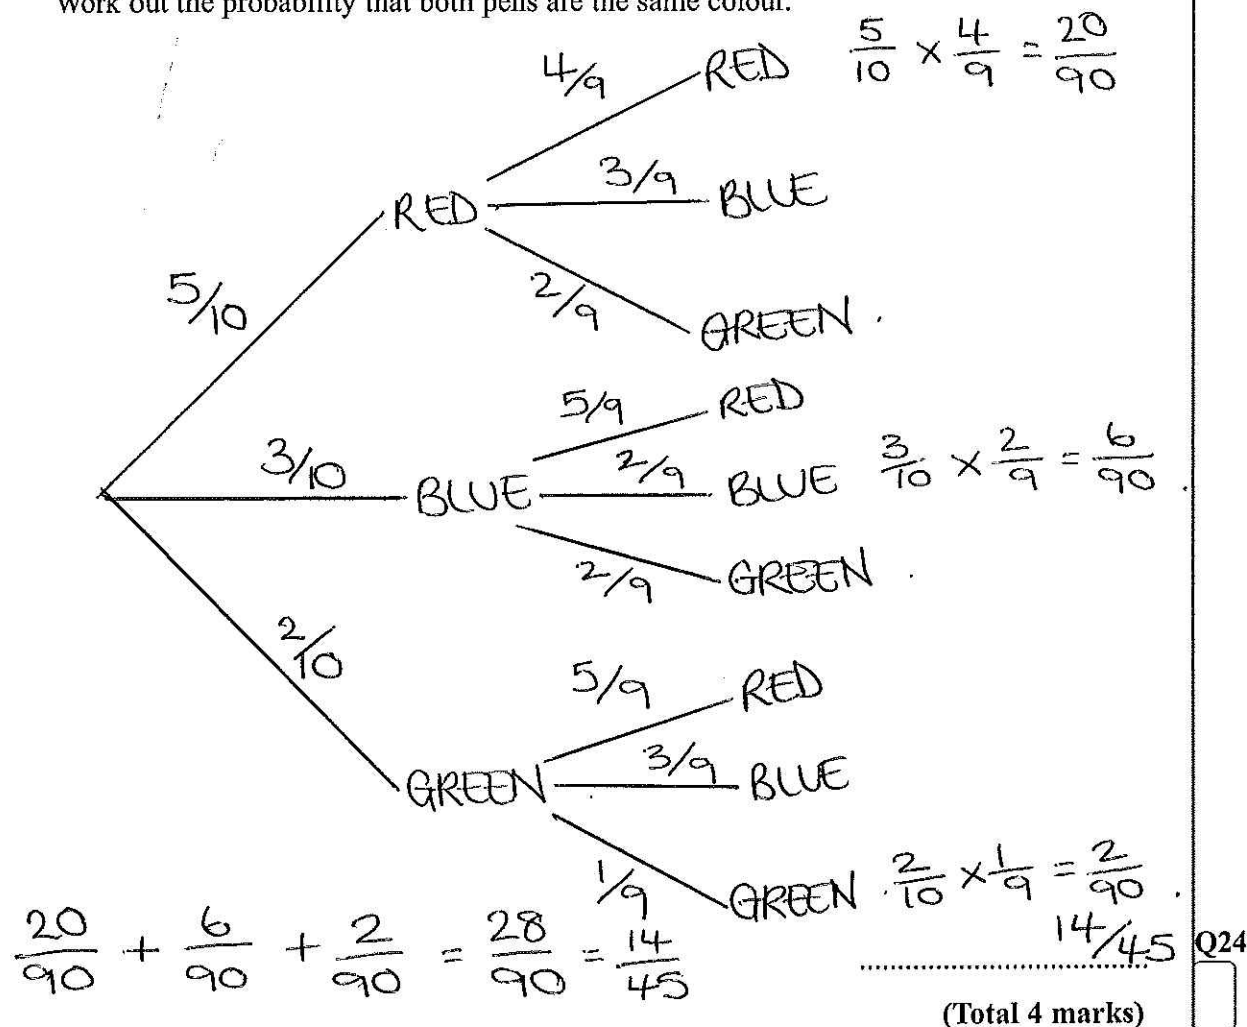 Work out the probability that both pens are the same colour.
4/9 RED 5/10 × 4/9 = 20/90
3/9 BLUE
RED
2/9 GREEN
5/10
5/9 RED
3/10 BLUE 2/9 BLUE 3/10 × 2/9 = 6/90
2/9 GREEN
2/10
5/9 RED
GREEN 3/9 BLUE
1/9 GREEN 2/10 × 1/9 = 2/90
20/90 + 6/90 + 2/90 = 28/90 = 14/45
14/45 Q24
(Total 4 marks)